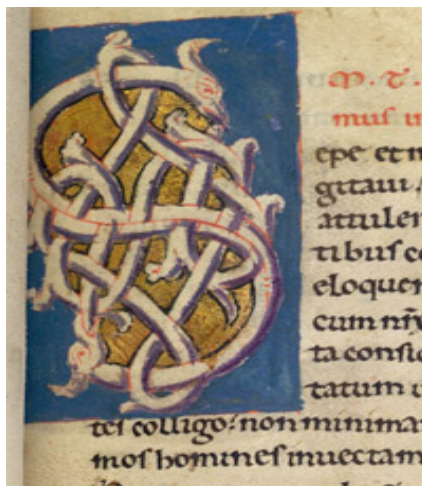 M. T.
mus in
S
epe et m
gitaui
attuler
tibus co
eloquen
cum
ta consid
tatum u
tes colligo: non minimam
mos homines inuectam